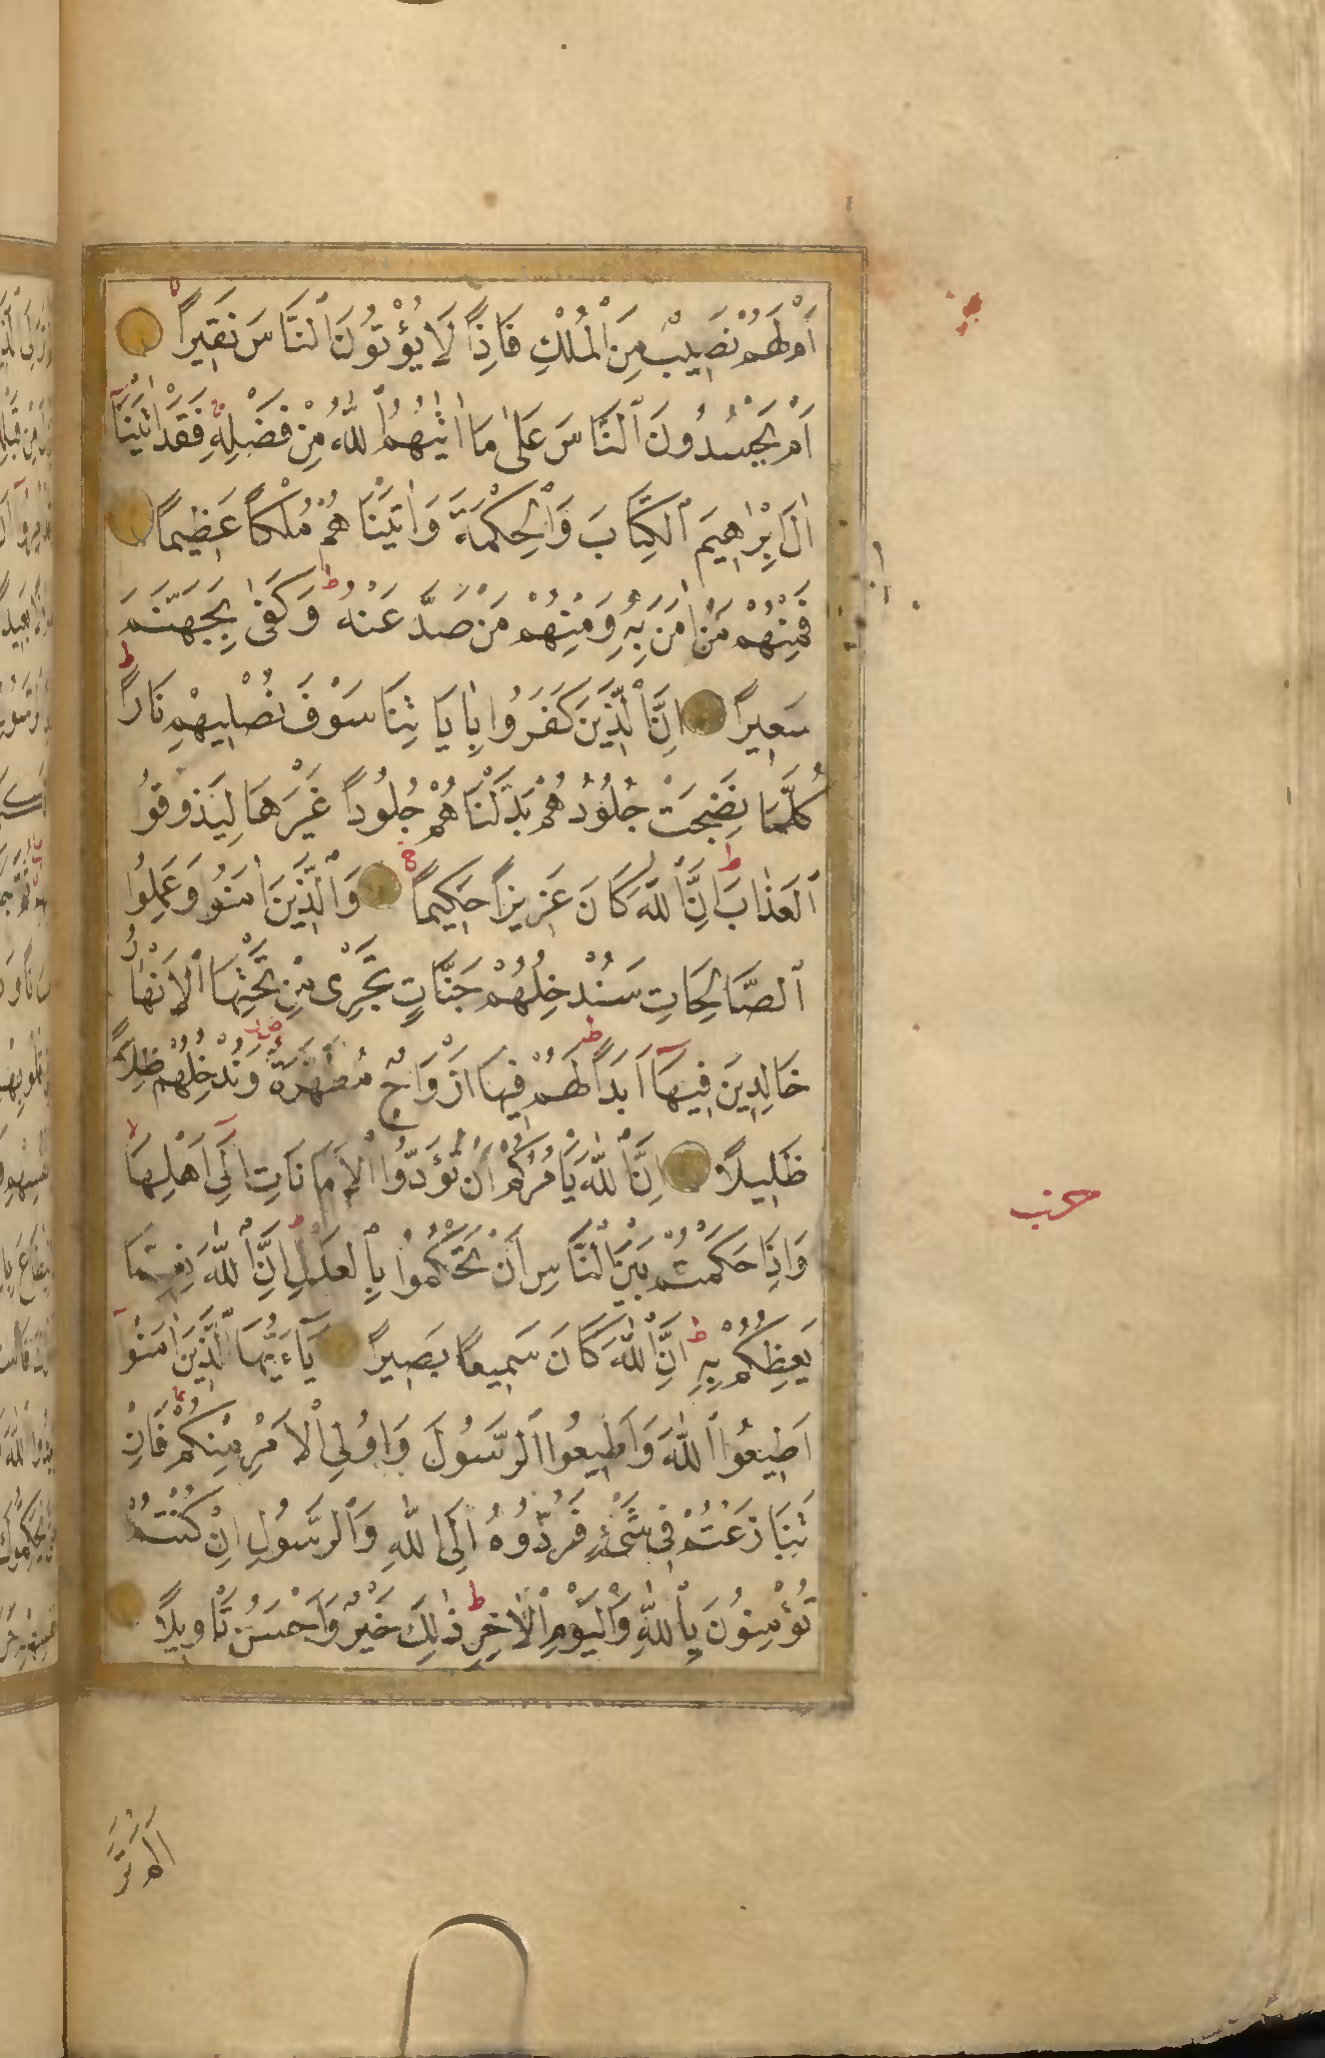 اَمْ لَهُمْ نَصِيبٌ مِنَ ٱلْمُلْكِ فَاِذًا لَا يُؤْتُونَ ٱلنَّاسَ نَقِيرًا
اَمْ يَحْسُدُونَ ٱلنَّاسَ عَلٰى مَا اٰتٰيهُمُ ٱللّٰهُ مِنْ فَضْلِهِ فَقَدْ اٰتَيْنَا
اٰلَ اِبْرٰاهِيمَ ٱلْكِتَابَ وَٱلْحِكْمَةَ وَاٰتَيْنَاهُمْ مُلْكًا عَظِيمًا
فَمِنْهُمْ مَنْ اٰمَنَ بِهِ وَمِنْهُمْ مَنْ صَدَّ عَنْهُ ط وَكَفٰى بِجَهَنَّمَ
سَعِيرًا اِنَّ ٱلَّذِينَ كَفَرُوا بِاٰيَاتِنَا سَوْفَ نُصْلِيهِمْ نَارًا ط
كُلَّمَا نَضِجَتْ جُلُودُهُمْ بَدَّلْنَاهُمْ جُلُودًا غَيْرَهَا لِيَذُوقُوا
ٱلْعَذَابَ ط اِنَّ ٱللّٰهَ كَانَ عَزِيزًا حَكِيمًا وَٱلَّذِينَ اٰمَنُو وَعَمِلُوا
ٱلصَّالِحَاتِ سَنُدْخِلُهُمْ جَنَّاتٍ تَجْرِى مِنْ تَحْتِهَا ٱلْاَنْهَارُ
خَالِدِينَ فِيهَا اَبَدًا ط لَهُمْ فِيهَا اَزْوَاجٌ مُطَهَّرَةٌ وَنُدْخِلُهُمْ ظِلًّا
ظَلِيلًا اِنَّ ٱللّٰهَ يَأْمُرُكُمْ اَنْ تُؤَدُّوا ٱلْاَمَانَاتِ اِلٰى اَهْلِهَا لا
وَاِذَا حَكَمْتُمْ بَيْنَ ٱلنَّاسِ اَنْ تَحْكُمُوا بِٱلْعَدْلِ ط اِنَّ ٱللّٰهَ نِعِمَّا
يَعِظُكُمْ بِهِ ط اِنَّ ٱللّٰهَ كَانَ سَمِيعًا بَصِيرًا يَاءَيُّهَا ٱلَّذِينَ اٰمَنُو
اَطِيعُوا ٱللّٰهَ وَاَطِيعُوا ٱلرَّسُولَ وَاُولِى ٱلْاَمْرِ مِنْكُمْ فَاِنْ
تَنَازَعْتُمْ فِى شَىْءٍ فَرُدُّوهُ اِلَى ٱللّٰهِ وَٱلرَّسُولِ اِنْ كُنْتُمْ
تُؤْمِنُونَ بِٱللّٰهِ وَٱلْيَوْمِ ٱلْاٰخِرِ ط ذٰلِكَ خَيْرٌ وَاَحْسَنُ تَأْوِيلًا
حزب
اَلَمْ تَرَ